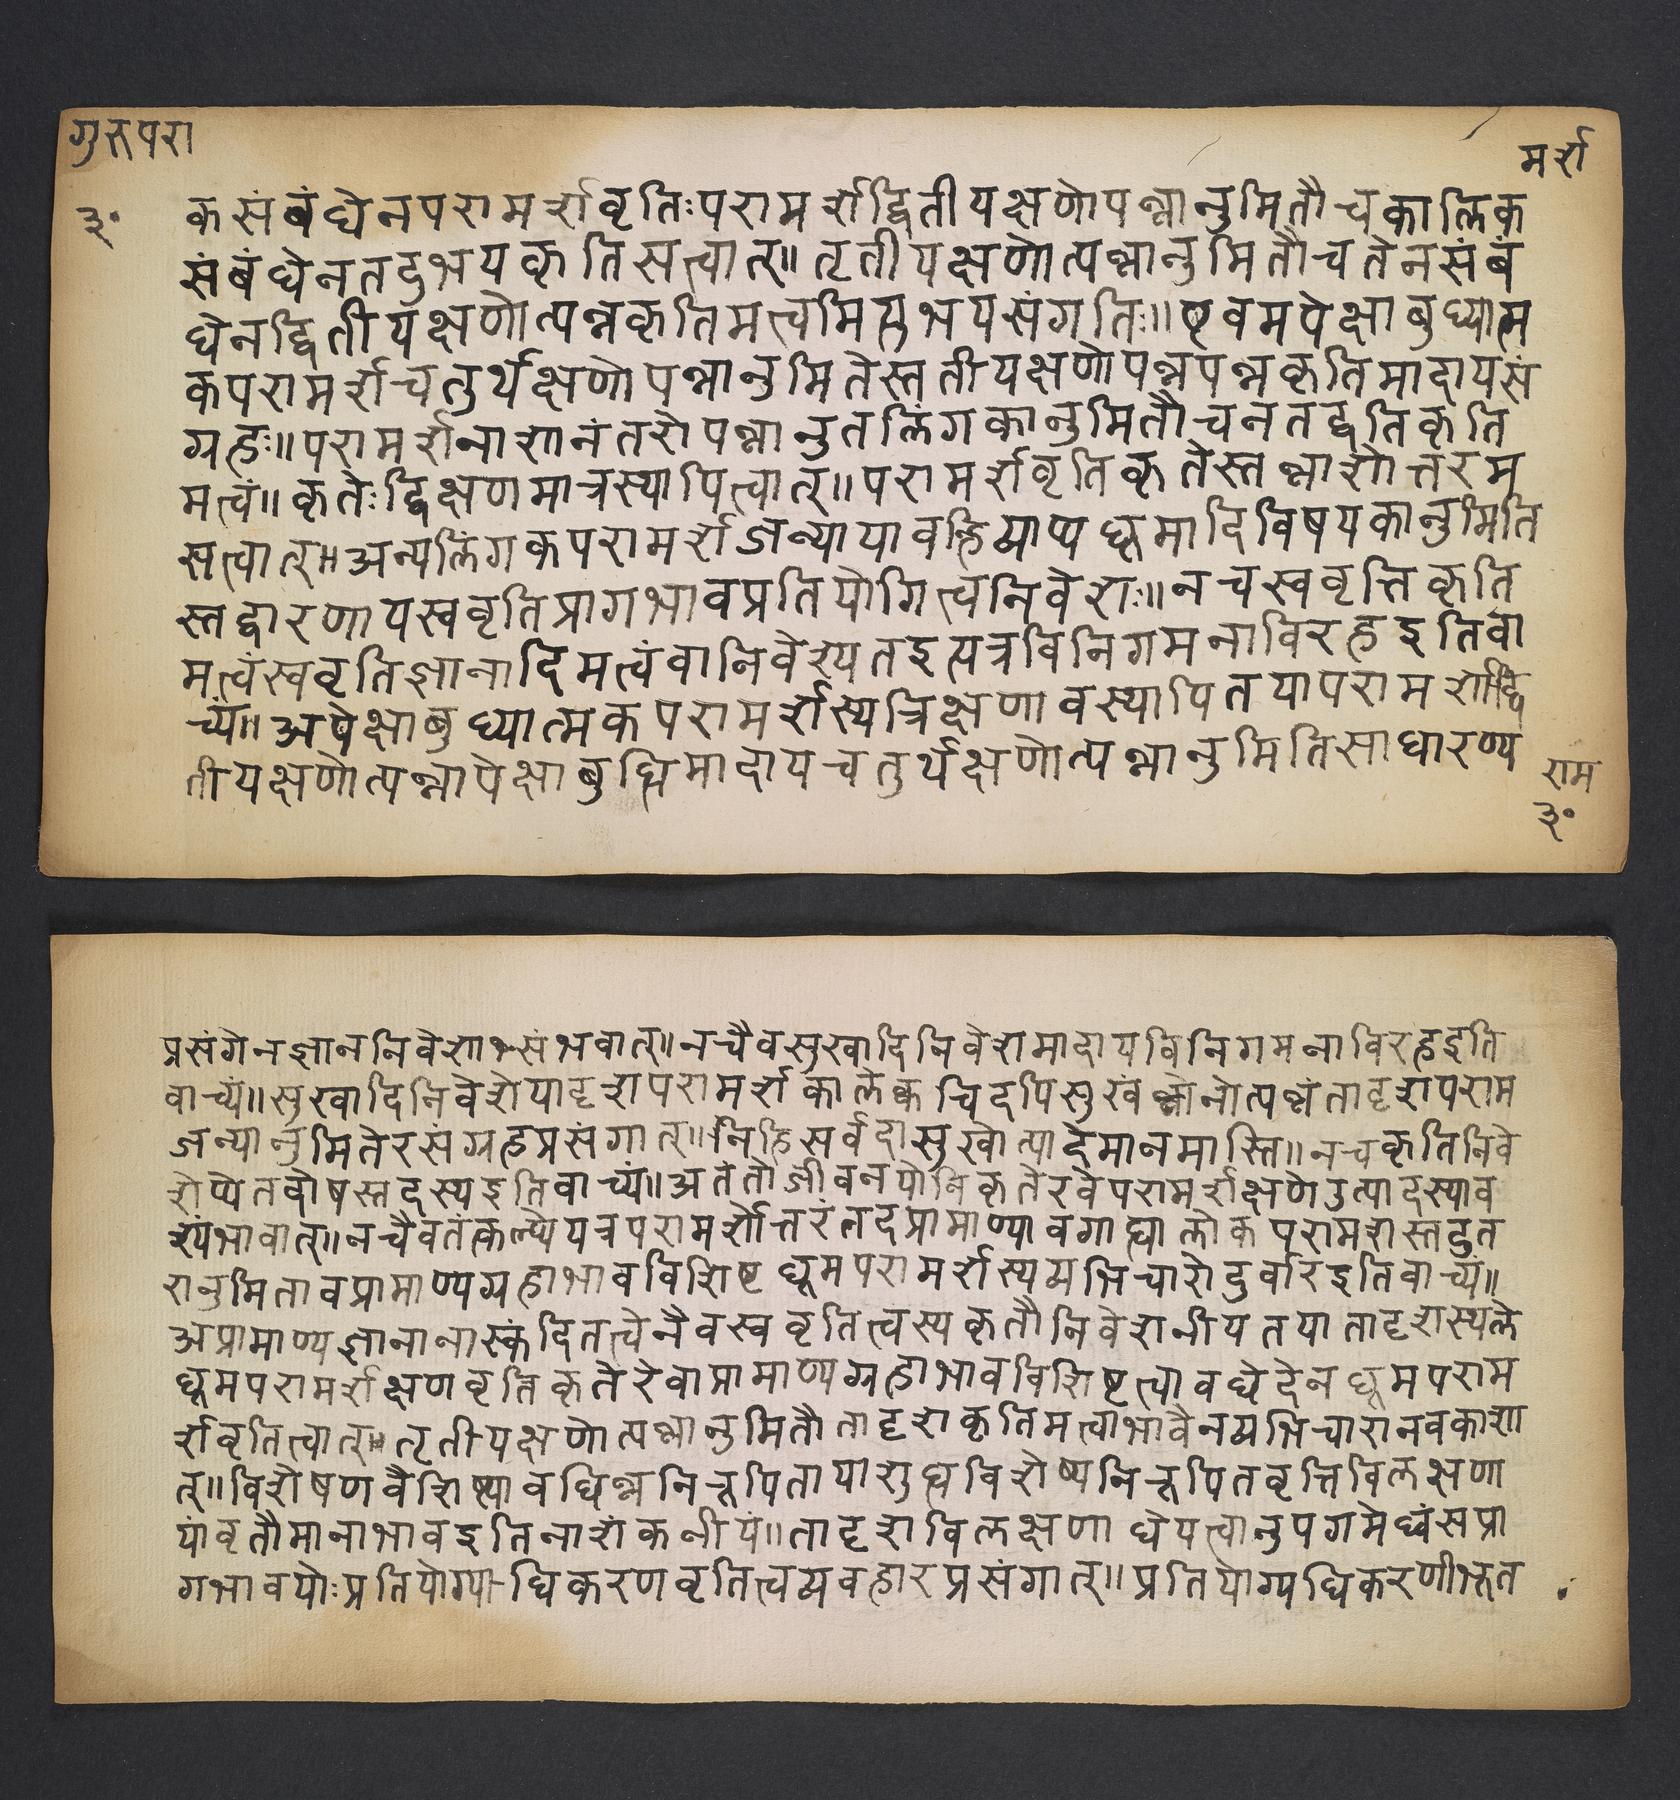 गुरुपरा
मर्श
३०
कसंबंधेनपरामर्शवृतिःपरामर्शद्वितीयक्षणोपन्नानुमितौचकालिक
संबंधेनतदुभयकृतिसत्त्वात्॥तृतीयक्षणोत्पन्नानुमितौचतेनसंबं
धेनद्वितीयक्षणोत्पन्नकृतिमत्त्वमित्युभयसंगतिः॥एवमपेक्षाबुध्यात्म
कपरामर्शचतुर्थक्षणोपन्नानुमितेस्ततीयक्षणोपन्नपन्नकृतिमादायसं
ग्रहः॥परामर्शनाशानंतरोपन्नानुतलिंगकानुमितौचनतद्वतिकृति
मत्त्वं॥कृतेःद्विक्षणमात्रस्यापित्वात्॥परामर्शवृतिकृतेस्तन्नाशोत्तरम
सत्त्वात्॥अन्यलिंगकपरामर्शजन्यायावह्निव्याप्यधूमादिविषयकानुमिति
स्तद्वारणायस्ववृतिप्रागभावप्रतियोगित्वनिवेशः॥नचस्ववृत्तिकृति
मत्त्वंस्ववृतिज्ञानादिमत्वंवानिवेश्यतइत्यत्रविनिगमनाविरहइतिवा
च्यं॥अपेक्षाबुध्यात्मकपरामर्शस्यत्रिक्षणावस्थापितयापरामर्शाद्वि
तीयक्षणोत्पन्नापेक्षाबुद्धिमादायचतुर्थक्षणोत्पन्नानुमितिसाधारण्य
राम
३०
प्रसंगेनज्ञाननिवेशाऽसंभवात्॥नचैवसुखादिनिवेशमादायविनिगमनाविरहइति
वाच्यं॥सुखादिनिवेशेयादृशपरामर्शकालेक्वचिदपिसुखंनोत्पन्नंतादृशपराम
जन्यानुमितेरसंग्रहप्रसंगात्॥निहिसर्वदासुखोत्पादेमानमास्ति॥नचकृतिनिवे
शेप्येतद्दोषस्तदस्यइतिवाच्यं॥अतंतोजीवनयोनिकृतेरवेपरामर्शक्षणेउत्पादस्याव
श्यंभावात्॥नचैवतंत्कल्प्येयत्रपरामर्शोत्तरंतदप्रामाण्यावगाह्यालोकपरामर्शस्तदुत
रानुमितावप्रामाण्यग्रहाभावविशिष्टधूमपरामर्शस्यव्यभिचारोदुर्वारइतिवाच्यं॥
अप्रामाण्यज्ञानानास्कंदितत्त्वेनैवस्ववृतित्त्वस्यकृतौनिवेशनीयतयातादृशस्थले
धूमपरामर्शक्षणवृतिकृतेरेवाप्रामाण्यग्रहाभावविशिष्टत्त्वावछेदेनधूमपराम
र्शवृतित्त्वात्॥तृतीयक्षणोत्पन्नानुमितौतादृशकृतिमत्त्वाभावेनव्यभिचारानवकाशा
त्॥विशेषणवैशिष्ट्यावछिन्ननिरूपितायाशुद्धविशेष्यनिरूपितवृत्तिविलक्षणा
यांवृतौमानाभावइतिनाशंकनीयं॥तादृशविलक्षणाधेयत्वानुपगमेध्वंसप्रा
गभावयोःप्रतियोग्याधिकरणवृतित्त्वव्यवहारप्रसंगात्॥प्रतियोग्यधिकरणीभूत